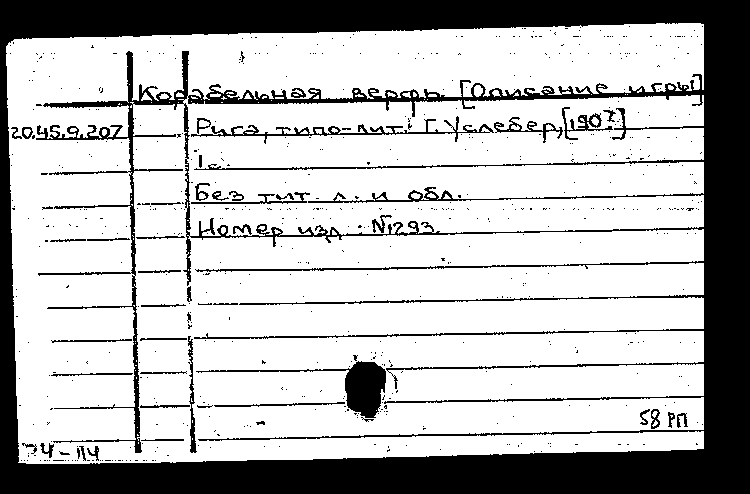 Корабельная верфь. [Описание игры]
20.45.9.207 Рига, типо-лит. Г. Услебер, [190?]
1 с.
Без тит. л. и обл.
Номер изд.: №1293.
58 РП
74-114